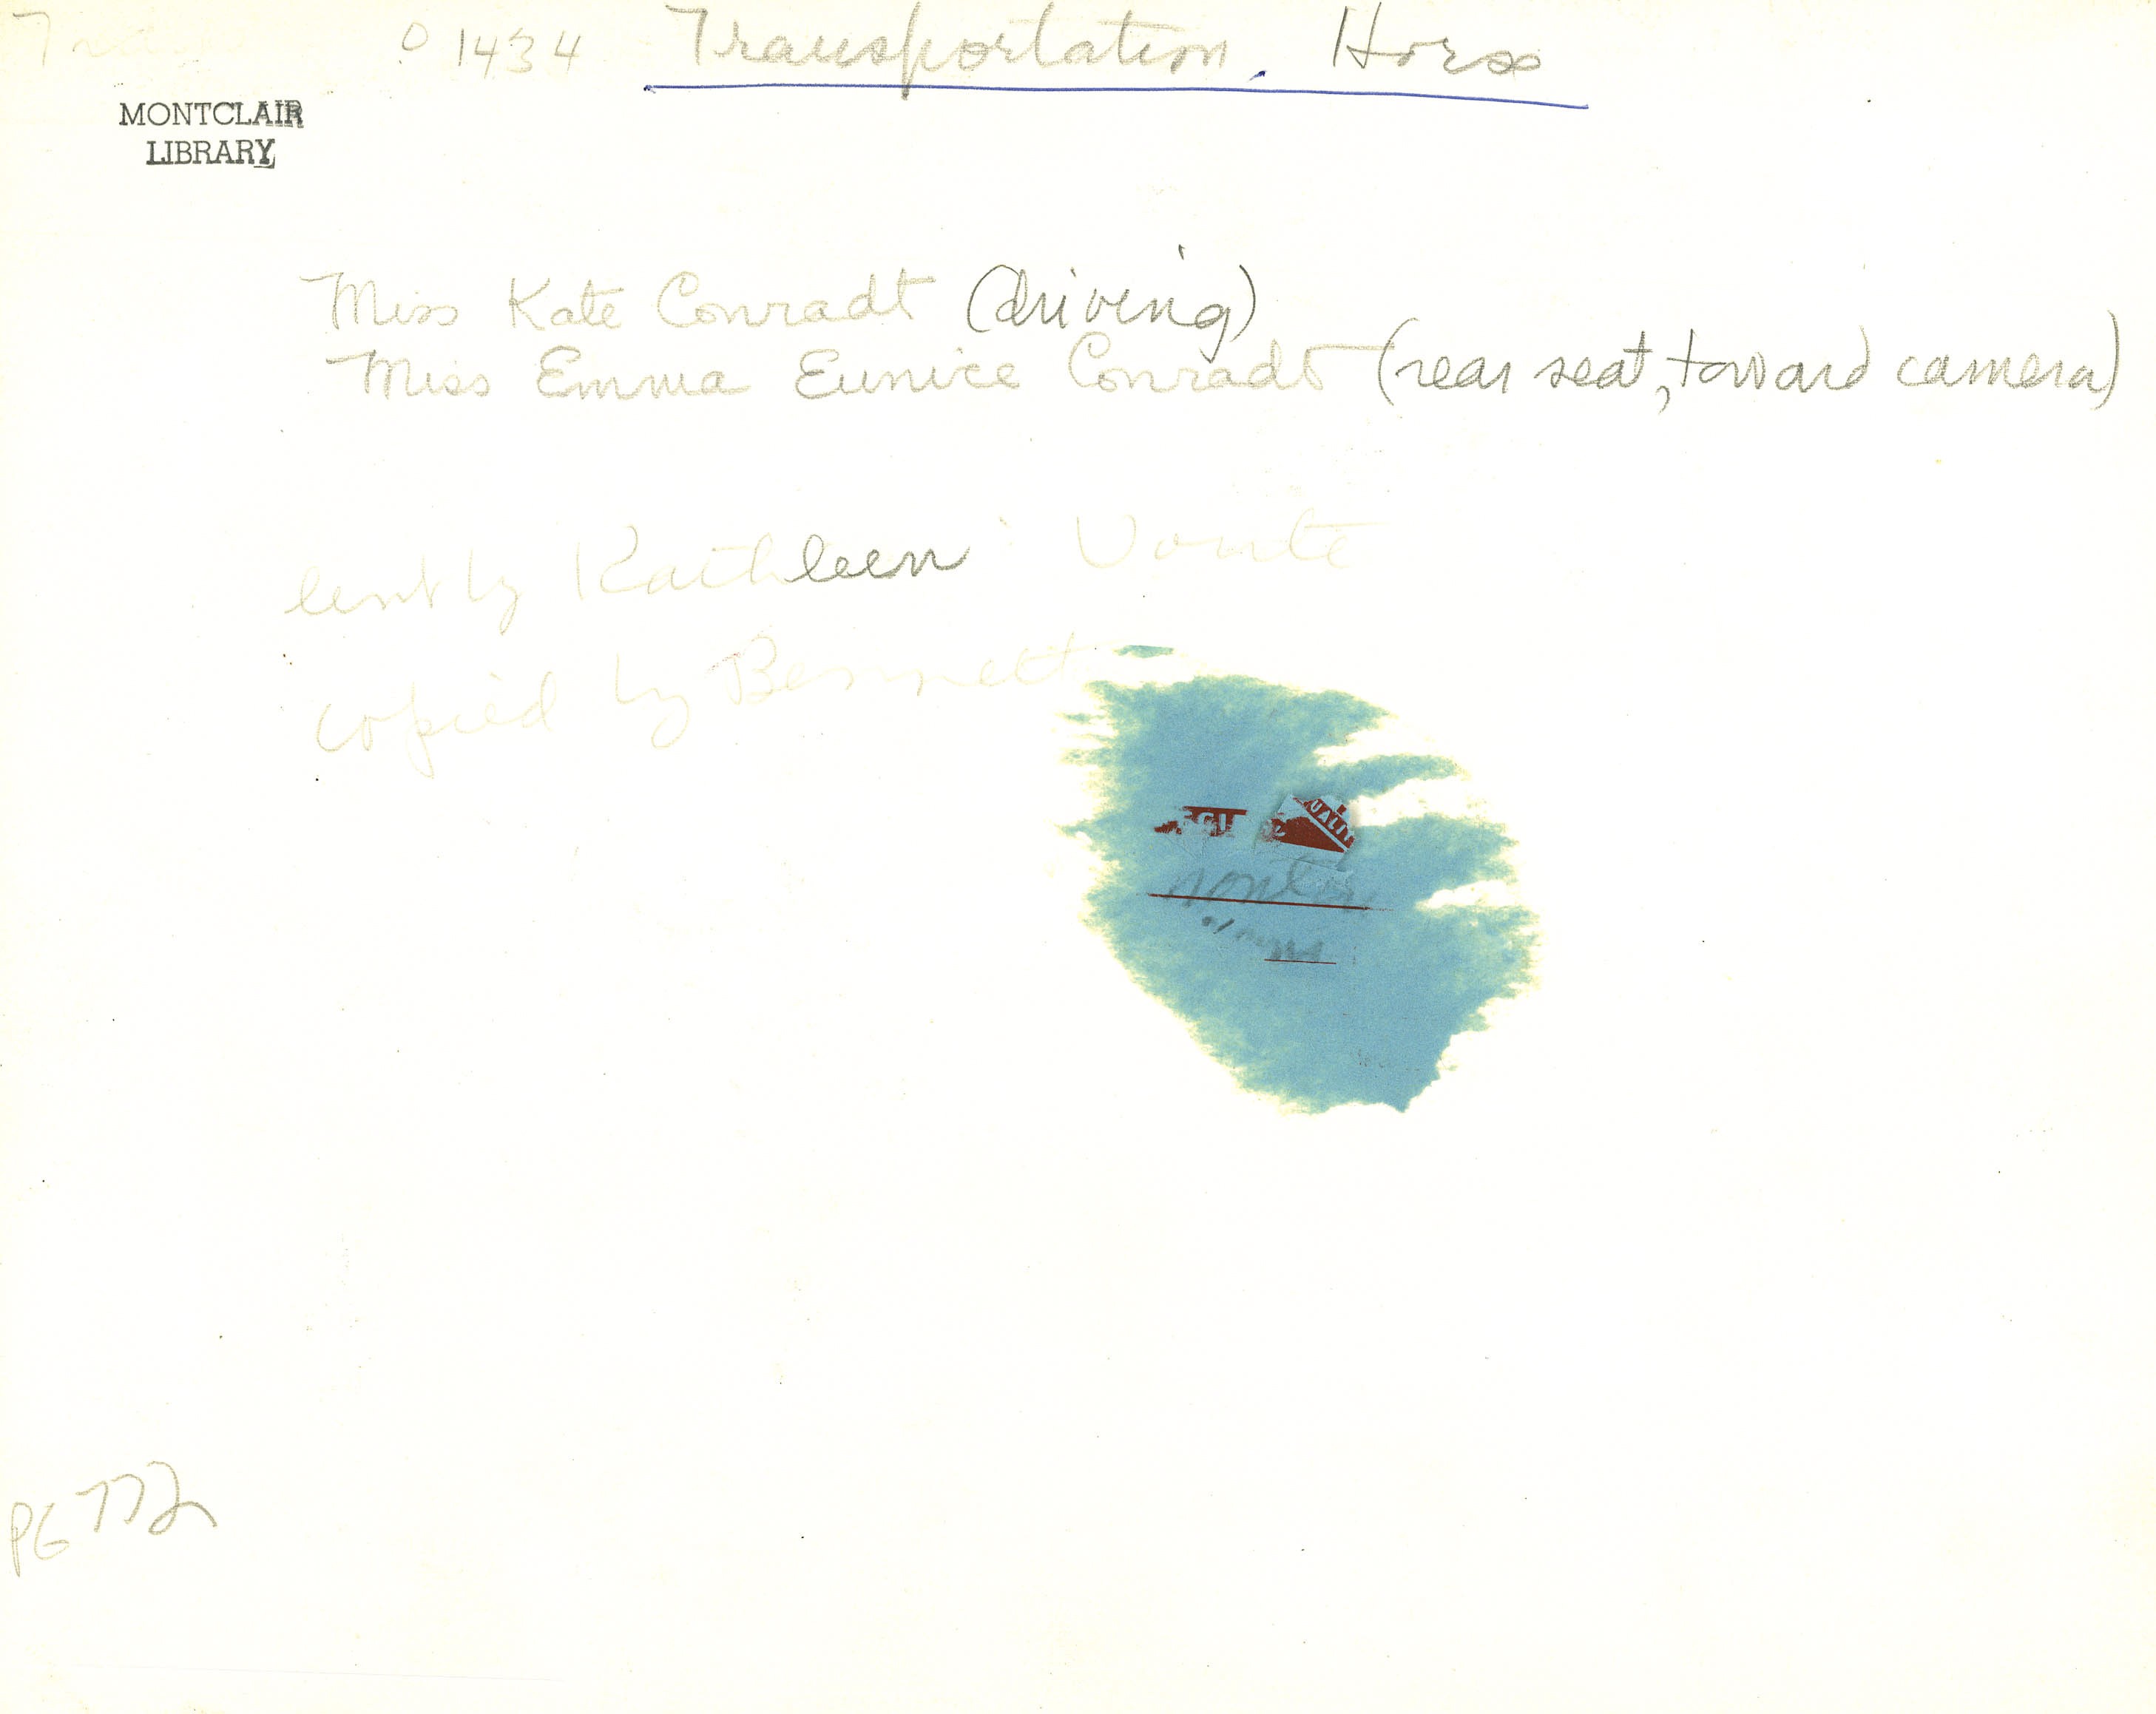 01434 Transportation. Horse
MONTCLAIR
LIBRARY
Miss Kate Conradt (driving)
Miss Emma Eunice Conradt (rear seat, toward camera)
lent by Kathleen Vonte
copied by Bennett
UALIT
PG 772